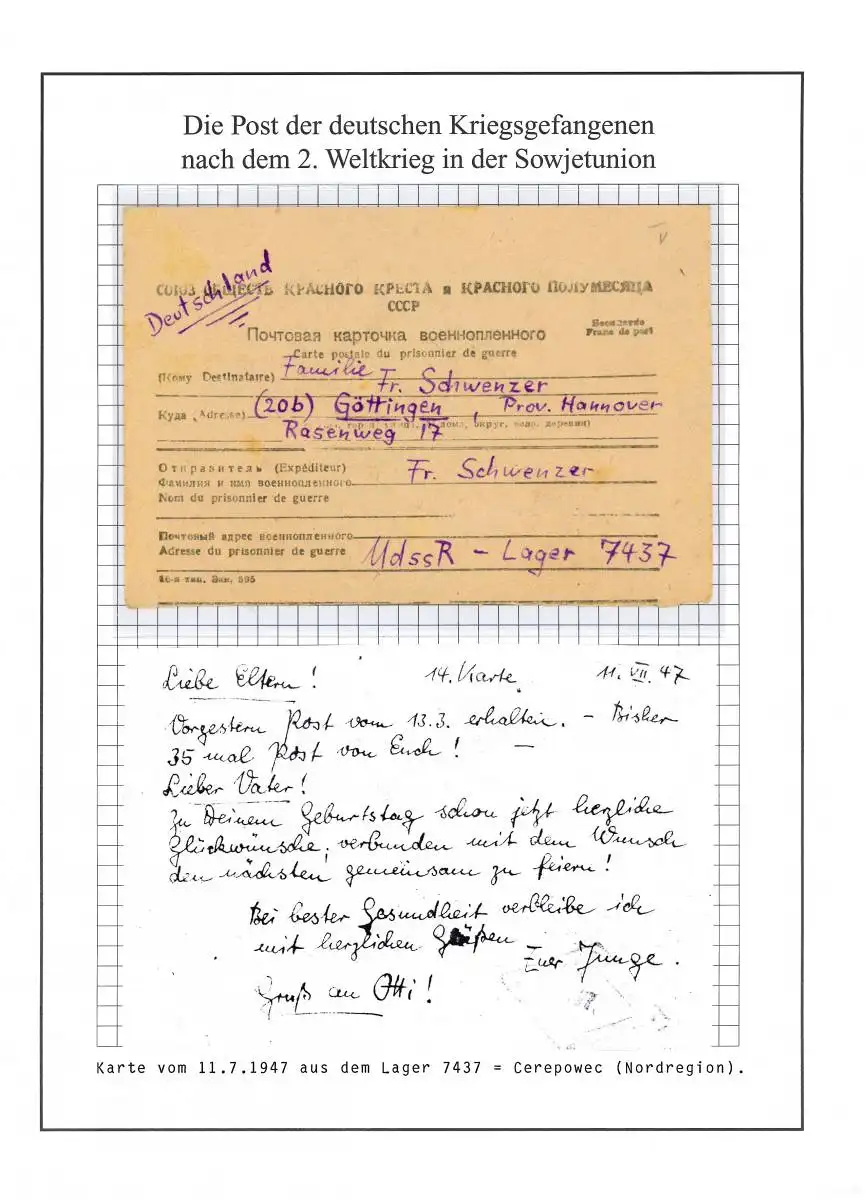 Die Post der deutschen Kriegsgefangenen
nach dem 2. Weltkrieg in der Sowjetunion
Deutschland
СОЮЗ ОБЩЕСТВ КРАСНОГО КРЕСТА и КРАСНОГО ПОЛУМЕСЯЦА
СССР
Почтовая карточка военнопленного
Бесплатно
Franc de port
Carte postale du prisonnier de guerre
(Кому Destinataire) Familie
Fr. Schwenzer
Куда (Adresse) (20b) Göttingen, Prov. Hannover
округ, село, деревня)
Rasenweg 17
Отправитель (Expéditeur) Fr. Schwenzer
Фамилия и имя военнопленного
Nom du prisonnier de guerre
Почтовый адрес военнопленного
Adresse du prisonnier de guerre UdssR - Lager 7437
16-я тип. Зак. 595
Liebe Eltern! 14. Karte. 11. VII. 47
Vorgestern Post vom 13.3. erhalten. – Bisher
35 mal Post von Euch! —
Lieber Vater!
Zu Deinem Geburtstag schon jetzt herzliche
Glückwünsche, verbunden mit dem Wunsch
den nächsten gemeinsam zu feiern!
Bei bester Gesundheit verbleibe ich
mit herzlichen Grüßen
Euer Junge.
Gruß an Otti!
Karte vom 11.7.1947 aus dem Lager 7437 = Cerepowec (Nordregion).